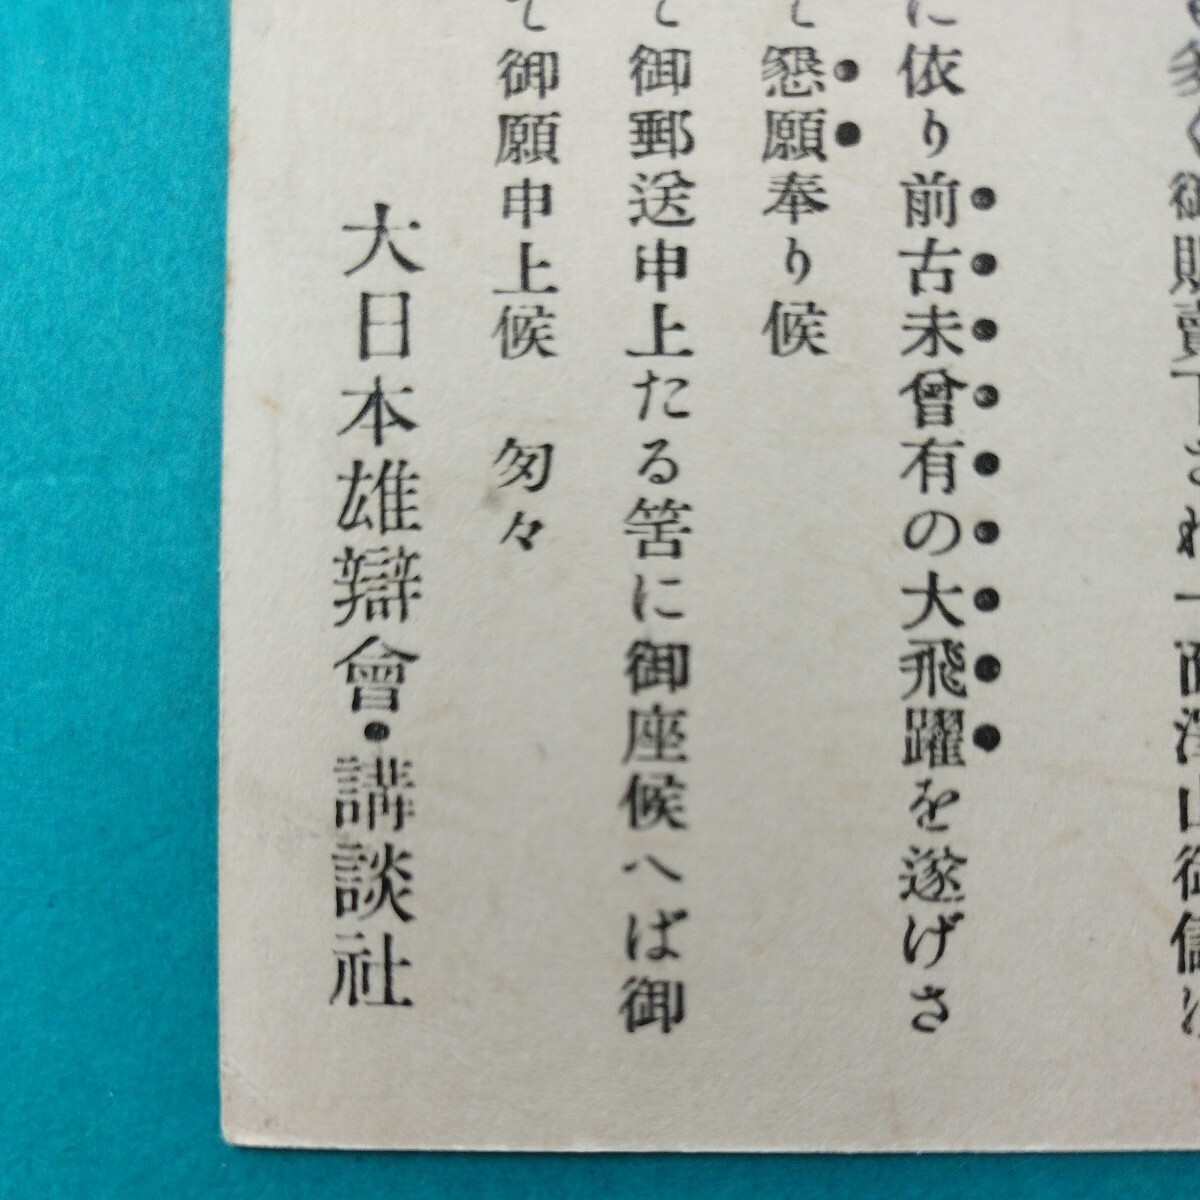 多く御販賣下され一面澤山御儲け
に依り前古未曾有の大飛躍を遂げさ
て懇願奉り候
て御郵送申上たる筈に御座候へば御
て御願申上候　匆々
大日本雄辯會・講談社